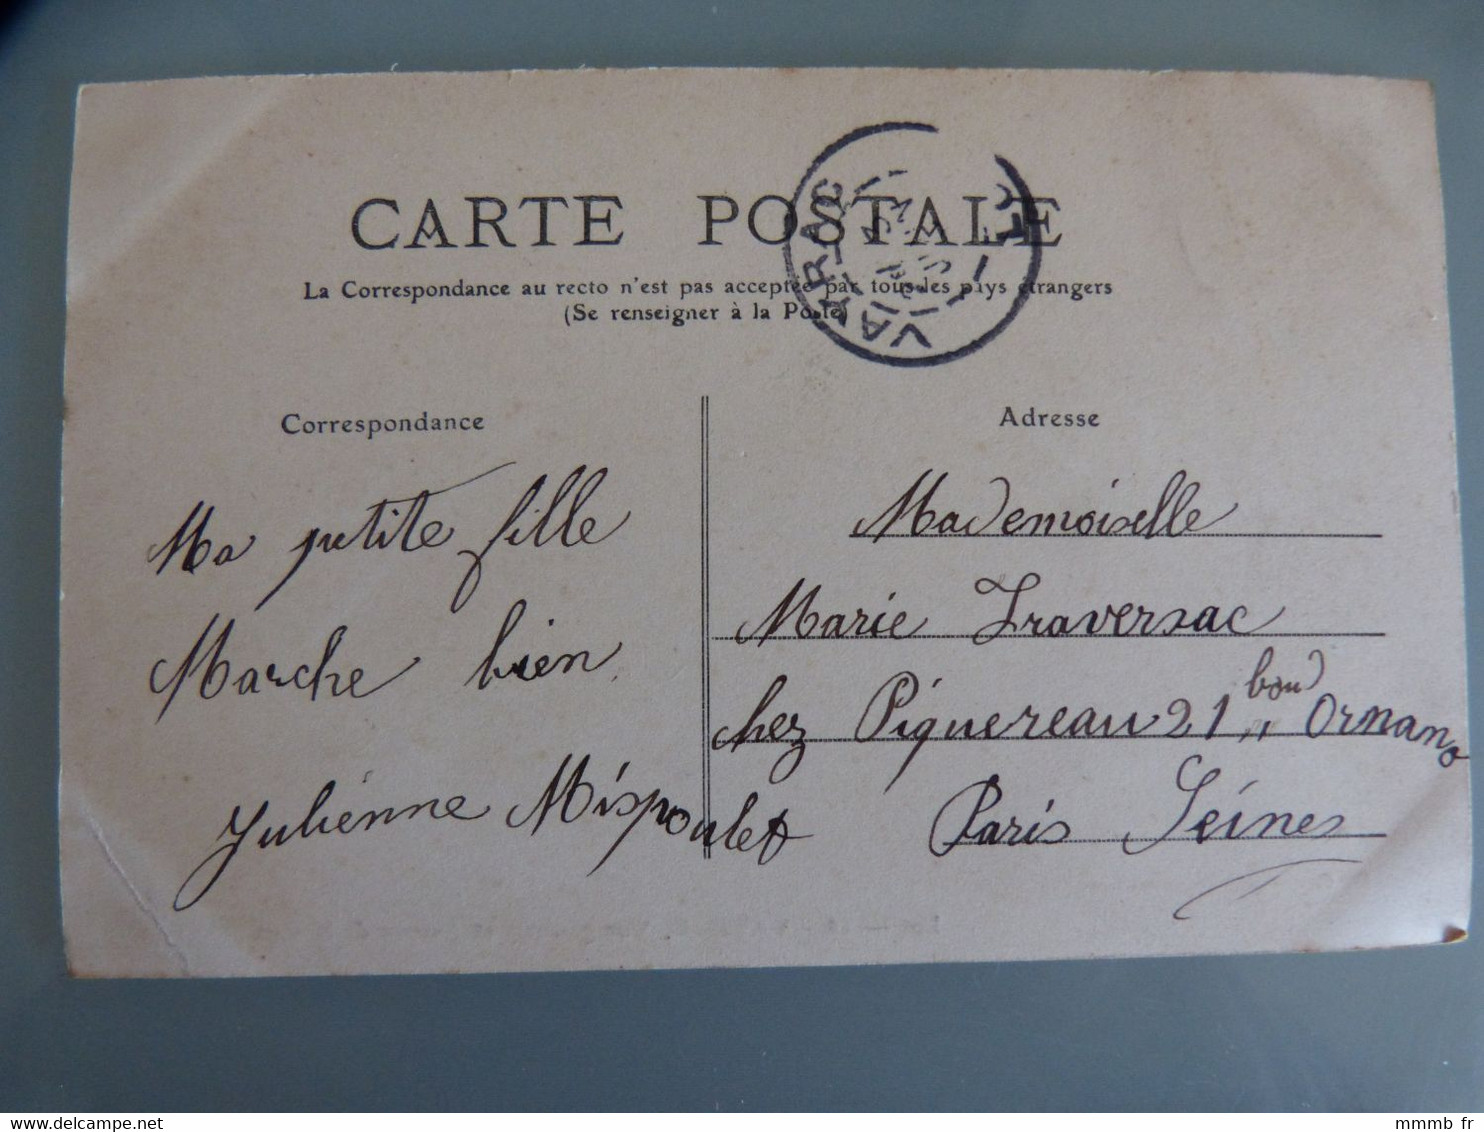 CARTE POSTALE
La Correspondance au recto n'est pas acceptée par tous les pays étrangers
(Se renseigner à la Poste)
VAYRAC
Correspondance
Ma petite fille
Marche bien
Julienne Mispoulet
Adresse
Mademoiselle
Marie Traversac
chez Piquereau 21 " boud Ornano
Paris Seines
mmmb fr